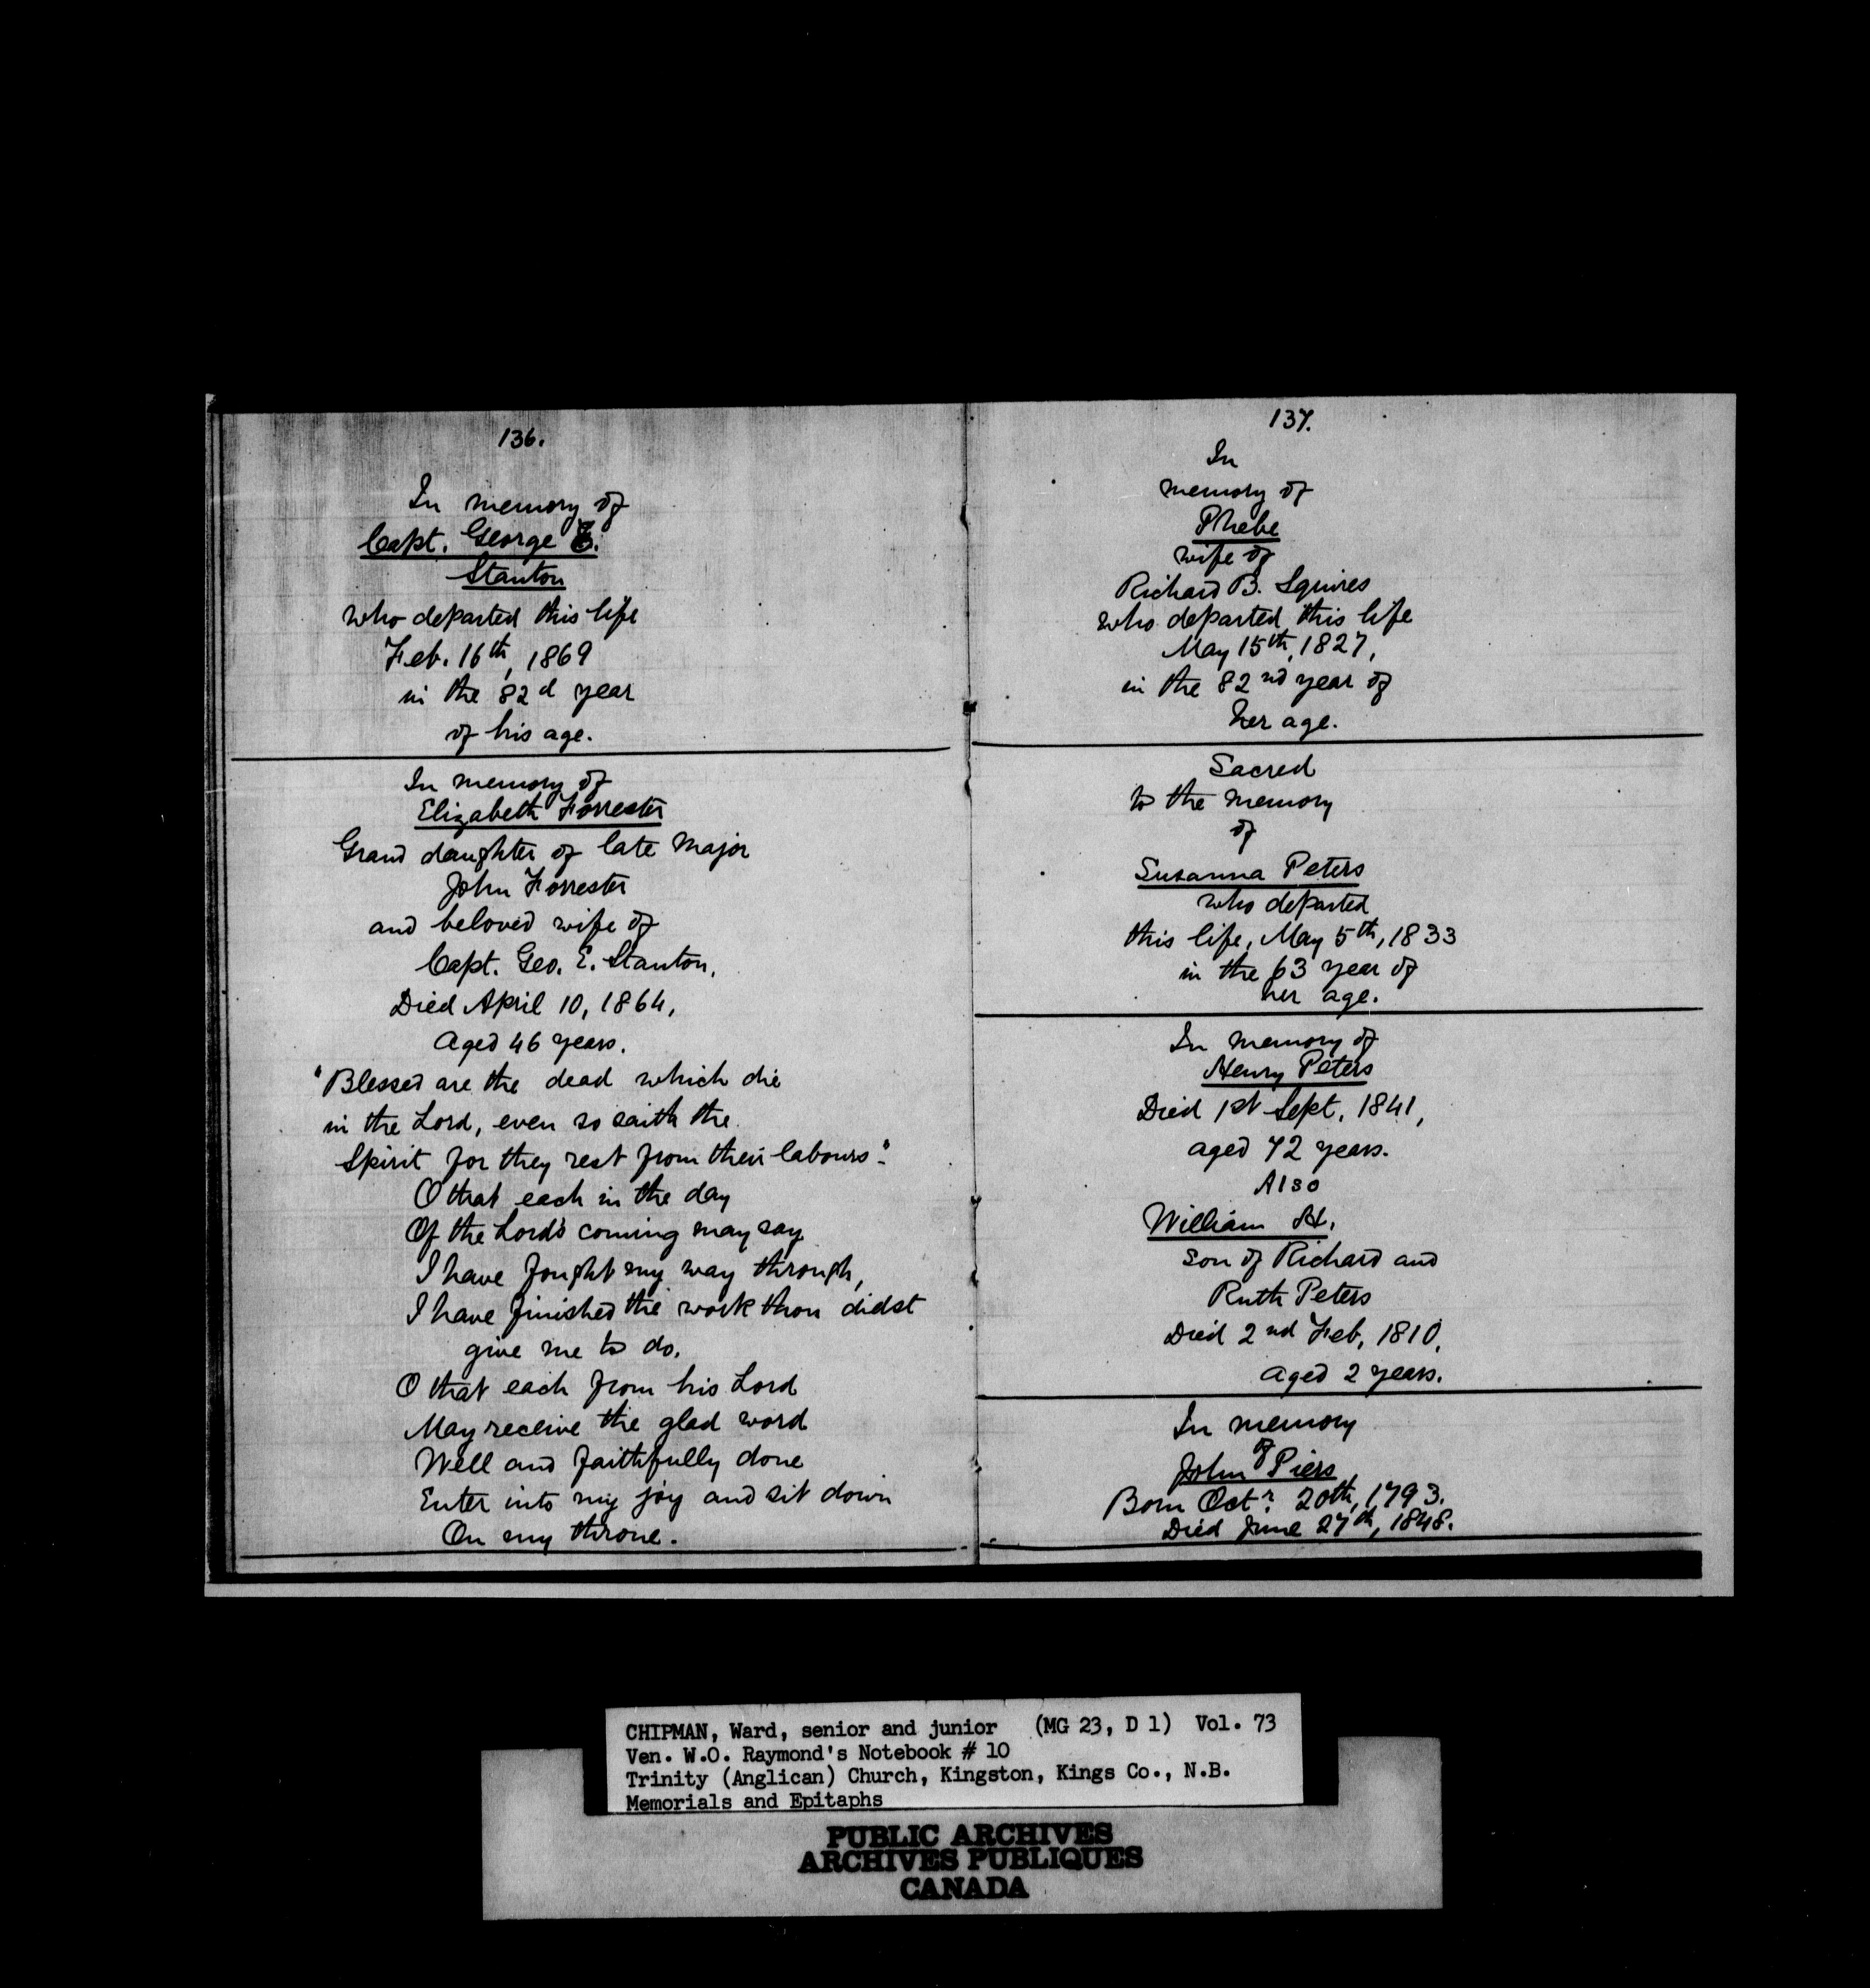 136.
In memory of
Capt. George E.
Stanton
who departed this life
Feb. 16th, 1869
in the 82d year
of his age.
In memory of
Elizabeth Forrester
Grand daughter of late Major
John Forrester
and beloved wife of
Capt. Geo. E. Stanton,
Died April 10, 1864,
Aged 46 years.
"Blessed are the dead which die
in the Lord, even so saith the
Spirit for they rest from their labours."
O that each in the day
Of the Lord's coming may say
I have fought my way through,
I have finished the work thou didst
give me to do.
O that each from his Lord
May receive the glad word
Well and faithfully done
Enter into my joy and sit down
On my throne.
137.
In
memory of
Phebe
wife of
Richard B. Squires
who departed this life
May 15th, 1827,
in the 82nd year of
her age.
Sacred
to the memory
of
Susanna Peters
who departed
this life, May 5th, 1833
in the 63 year of
her age.
In memory of
Henry Peters
Died 1st Sept, 1841,
aged 72 years.
Also
William H.
son of Richard and
Ruth Peters
Died 2nd Feb, 1810,
aged 2 years.
In memory
of
John Piers
Born Octr. 20th, 1793.
Died June 27th, 1848.
CHIPMAN, Ward, senior and junior (MG 23, D 1) Vol. 73
Ven. W.O. Raymond's Notebook # 10
Trinity (Anglican) Church, Kingston, Kings Co., N.B.
Memorials and Epitaphs
PUBLIC ARCHIVES
ARCHIVES PUBLIQUES
CANADA